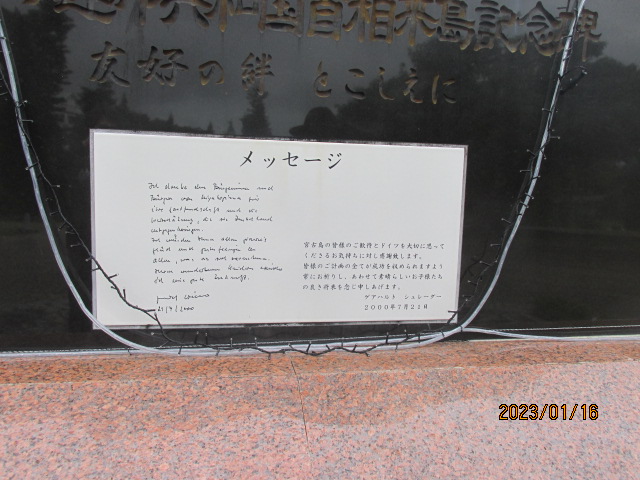 共和国首相来島記念碑
友好の絆 とこしえに
メッセージ
Ich danke den Bürgerinnen und
Bürgern von
ihre Gastfreundschaft und die
die sie Deutschland
entgegenbringen.
Ich wünsche Ihnen allen
Glück und gutes Gelingen
alles, was sie sich vornehmen.
Ihren Kindern
eine gute Zukunft.
21/7/2000
宮古島の皆様のご歓待とドイツを大切に思って
くださるお気持ちに対し感謝致します。
皆様のご計画の全てが成功を収められますよう
常にお祈りし、あわせて素晴らしいお子様たち
の良き将来を念じ申しあげます。
ゲアハルト シュレーダー
2000年7月21日
2023/01/16